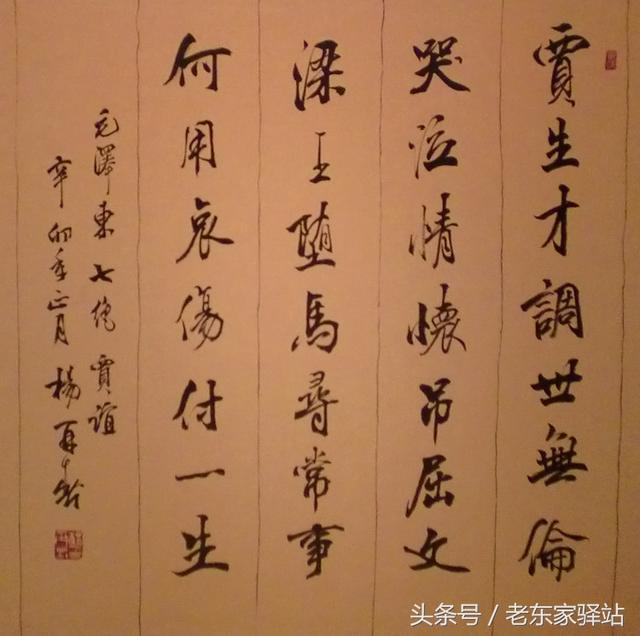 賈生才調世無倫
哭泣情懷吊屈文
梁王堕馬尋常事
何用哀傷付一生
毛澤東七絕 賈誼
辛卯年正月 楊再春
头条号 / 老东家驿站